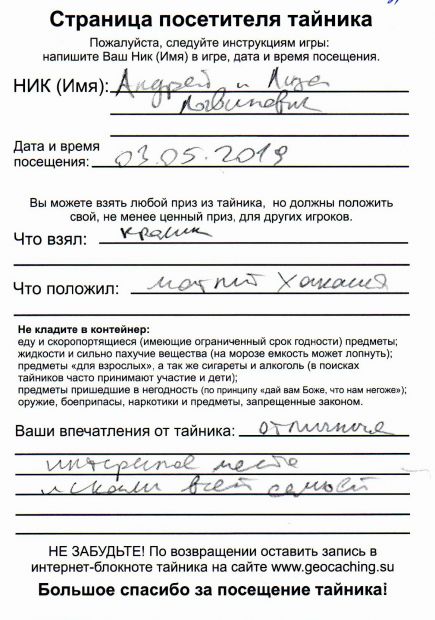 Страница посетителя тайника
Пожалуйста, следуйте инструкциям игры:
напишите Ваш Ник (Имя) в игре, дата и время посещения.
НИК (Имя): Андрей и Лиза
Дата и время
посещения: 03.05.2019
Вы можете взять любой приз из тайника, но должны положить
свой, не менее ценный приз, для других игроков.
Что взял:
Что положил: магнит Хакасия
Не кладите в контейнер:
еду и скоропортящиеся (имеющие ограниченный срок годности) предметы;
жидкости и сильно пахучие вещества (на морозе емкость может лопнуть);
предметы «для взрослых», а так же сигареты и алкоголь (в поисках
тайников часто принимают участие и дети);
предметы пришедшие в негодность (по принципу «дай вам Боже, что нам негоже»);
оружие, боеприпасы, наркотики и предметы, запрещенные законом.
Ваши впечатления от тайника: отличные
интересное место
искали всей семьей
НЕ ЗАБУДЬТЕ! По возвращении оставить запись в
интернет-блокноте тайника на сайте www.geocaching.su
Большое спасибо за посещение тайника!